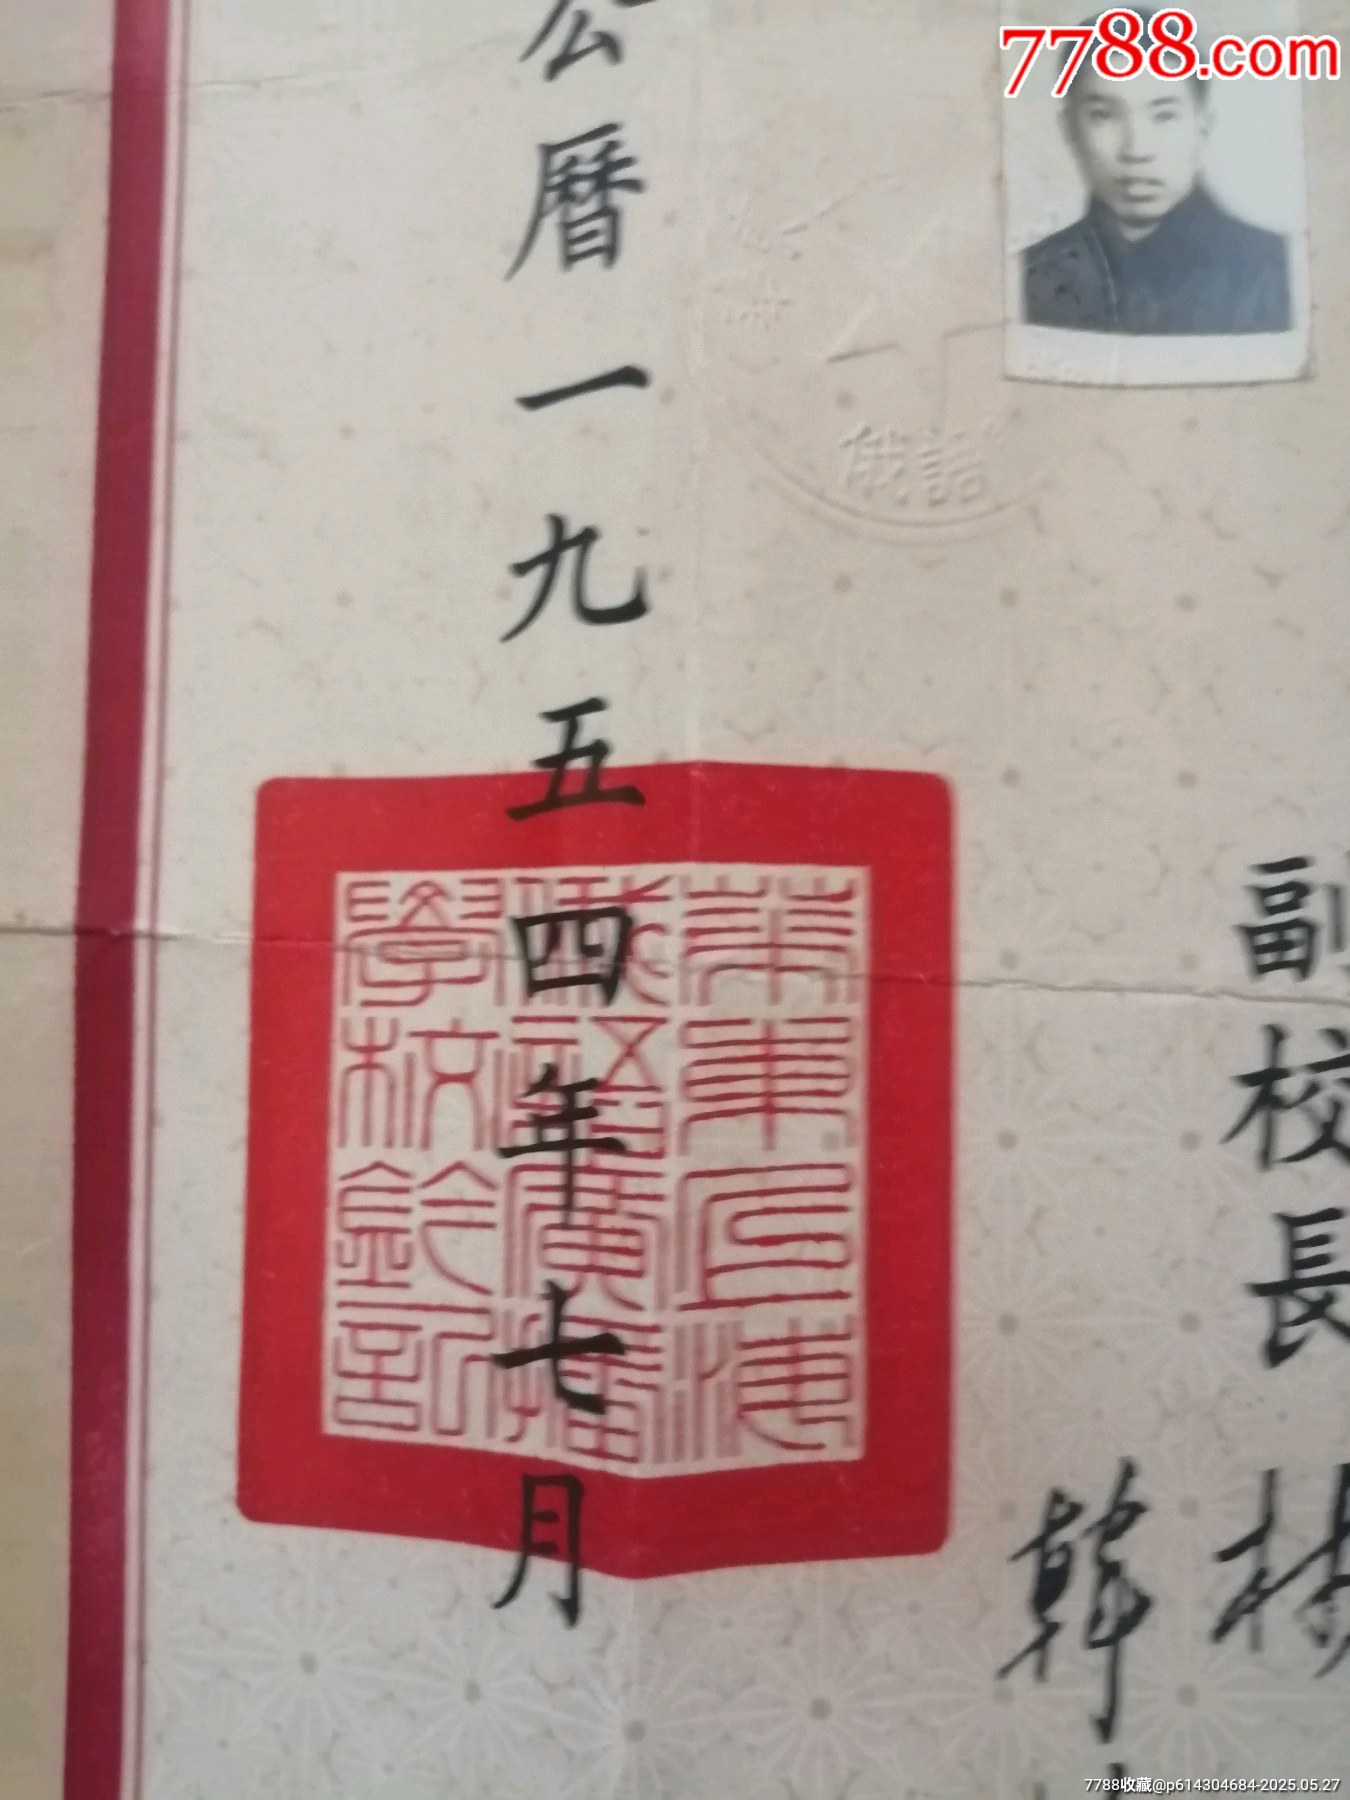 7788.com
副校長
韓
俄語
公曆一九五四年七月
華東上海
俄語廣播
學校鈐記
7788收藏@p614304684-2025.05.27